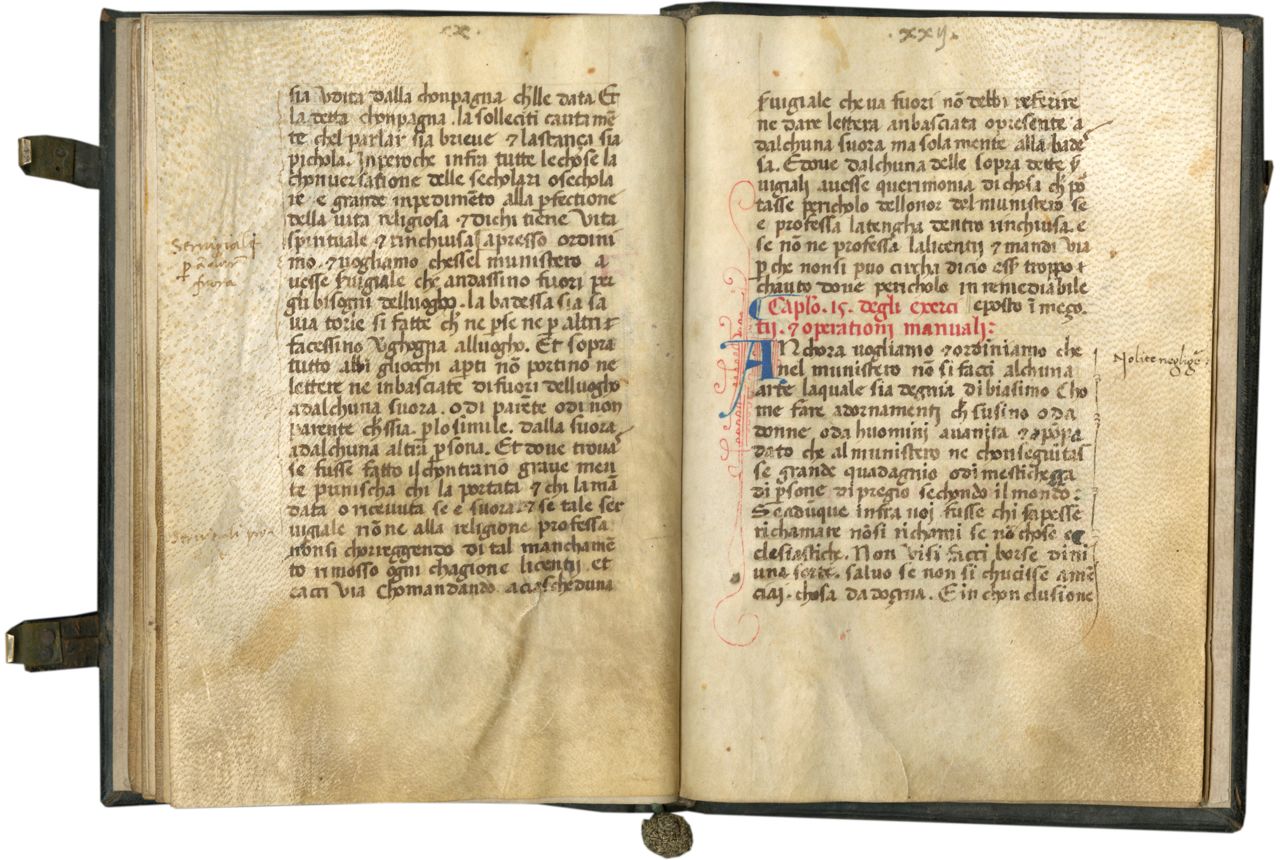 .xx.
sia udita dalla chonpagna chelle data Et
la detta chonpagna .la solleciti cautamē
te chel parlar sia brieue & lastança sia
pichola. Inperoche infra tutte le chose la
chonuersatione delle secholari o sechola
re e grande inpedimēto alla pfectione
della uita religiosa & di chi tiene Vita
spirituale & rinchiusa apresso ordini
mo. & uogliamo chessel munistero a
uesse seruigiale che andassino fuori per
gli bisogni delluogho. la badessa sia sa
uia torle si fatte ch ne pse ne p altri
facessino Vghogna alluogho. Et sopra
tutto abbi gliocchi apti nō portino ne
lettere ne inbasciate di fuori delluogho
adalchuna suora. o di parēte o di non
parente chessia. plo simule. dalla suora
adalchuna altra psona. Et doue troua
se fusse fatto il chontrario graue men
te punischa chi la portata & chi la mā
data o riceuuta se e suora. & se tale ser
uigiale nōne alla religione professa
nonsi choreggendo di tal manchamē
to rimosso ogni chagione licentij et
cacci via Chomandando aciascheduna
Seruigiali
fuora
.xxij.
seruigiale che ua fuori nō debbi referire
ne dare lettera anbasciata o presente a
dalchuna suora ma sola mente alla bade
sa. E doue dalchuna delle sopra dette s
uigiali auesse querimonia di chosa ch po
tasse pericholo dellonor del munistero se
e professa latengha dentro rinchiusa. e
se nō ne professa lalicentij & mandi via
p che nonsi puo circha dicio ess troppo
chauto doue pericholo inremediabile
Caplo. 15. degli exerci eposto ī meço.
tij. & operationi manuali:
ANchora uogliamo & ordiniamo che
nel munistero nō si facci alchuna
arte laquale sia degnia di biasimo Cho
me fare adornamenti ch susino o da
donne o da huomini a uanita & pōpa
dato che al munistero ne chonseguitas
se grande guadagnio o dimestichegga
di psone di pregio sechondo il mondo:
Se adūque infra uoi fusse chi sapesse
richamare nōsi richami se nō chose ec
clesiastiche. Non Visi facci borse di ni
una sorte. saluo se non si chucisse amē
ciai. chosa dadogna. E in chonclusione
Nolite neglige